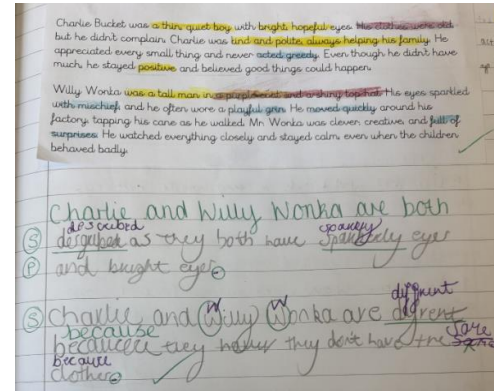 Charlie Bucket was a thin, quiet boy with bright, hopeful eyes. His clothes were old,
but he didn't complain. Charlie was kind and polite, always helping his family. He
appreciated every small thing and never acted greedy. Even though he didn't have
much, he stayed positive and believed good things could happen.
Willy Wonka was a tall man in a purple coat and a shiny top hat. His eyes sparkled
with mischief, and he often wore a playful grin. He moved quickly around his
factory, tapping his cane as he walked. Mr. Wonka was clever, creative, and full of
surprises. He watched everything closely and stayed calm, even when the children
behaved badly.
Charlie and Willy Wonka are both
described sparkly
(S) as they both have eyes
(P) and bright eyes.
diffrent
(S) Charlie and Willy Wonka are
because
they they don't have the same
because
clothes.